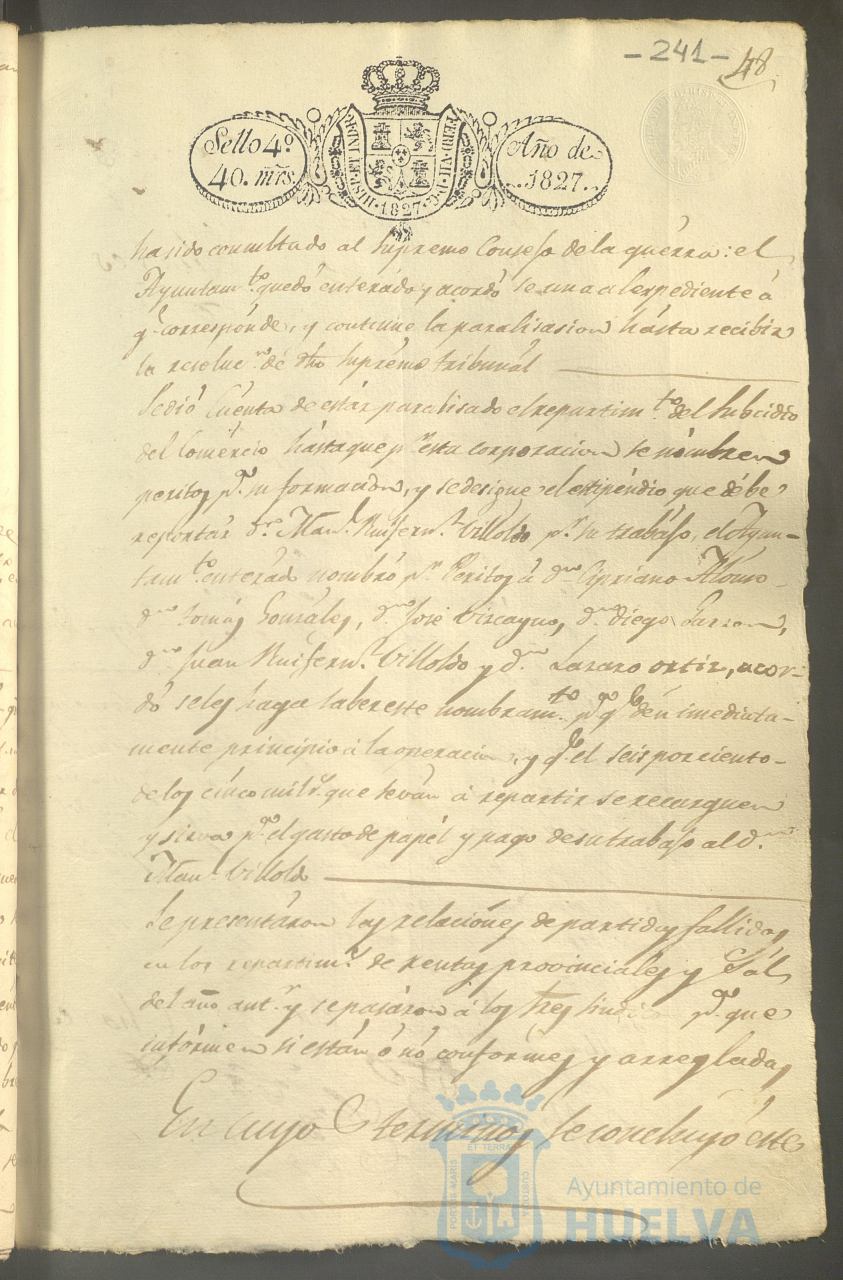 -241-
48
Sello 4º
40. mrs.
HISP. ET IND. R.
FERD. VII. D. G.
1827
Año de
1827.
ha sido consultado al Supremo Consejo de la guerra: el
Ayuntamto. quedó enterado y acordó se una al espediente á
q. corresponde, y continue la paralisasion hásta recibir
la resolucn. dé dho Suprémo tribunál
Se dió Cuenta de estár paralisado el repartimto. del Subcidio
del Comércio hásta que pr. esta corporacion se nómbren
peritos pa. su formacion, y se designe el estipéndio que débe
reportár Dn. Manl. Ruifernz. Villoldo pr. su trabájo, el Ayun-
tamto. enterado nombró pr. Peritos á dn. Cipriano Alonso
dn. tomás Gonsáles, dn. José Viscayno, dn. diego Garzon,
dn. Juan Ruifernz. Villoldo y dn. Lazaro ortiz, acor-
dó se les haga saber este nombramto. pa. qe. dén imediata-
mente principio á la operacion, y qe. el seis por ciento
de los cinco mil rs. que se ván á repartir se recarguen
y sirva pa. el gasto de papél y pago de su trabajo al dn.
Manl. Villoldo
Se presentáron las relaciónes de partidas fallidas
en los repartimtos. de rentas provinciáles y Sál
del año antr. y se pasáron á los tres pa. que
infórmen si están ó nó conformes y arregladas
En cuyos terminos se concluyó éste
PORTUS MARIS
ET TERRAE
CUSTODIA
Ayuntamiento de
HUELVA